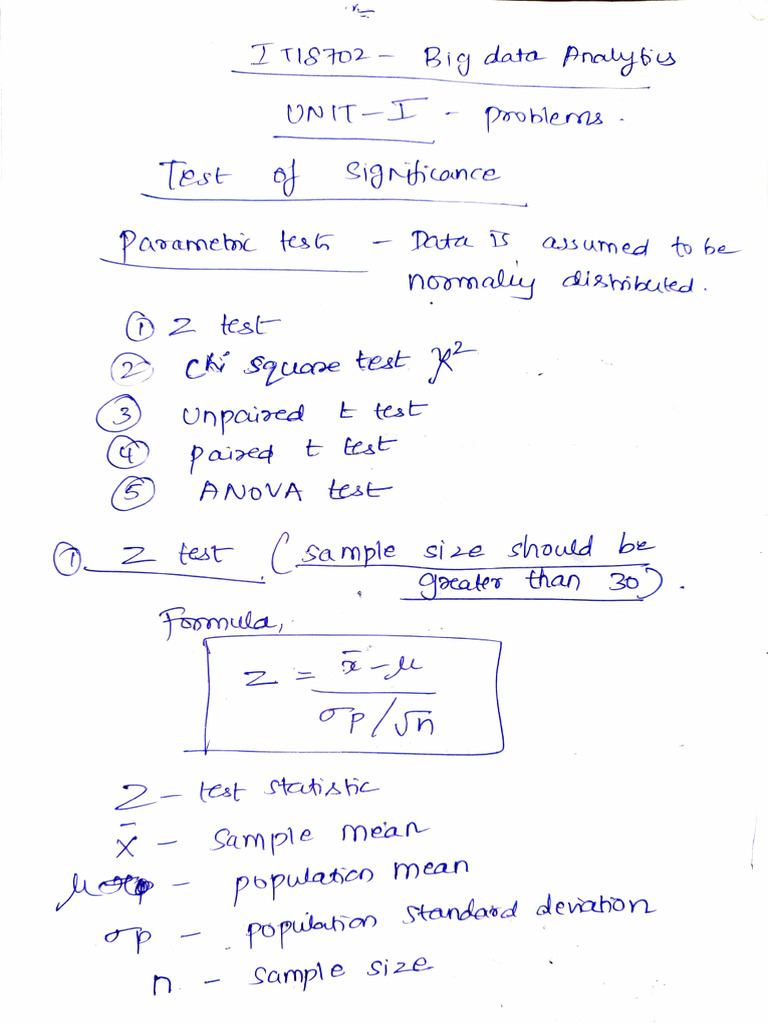 IT18702 - Big data Analytics
UNIT-I - problems.
Test of Significance
Parametric test - Data is assumed to be
normally distributed.
① Z test
② Chi square test χ²
③ unpaired t test
④ paired t test
⑤ ANOVA test
① Z test (sample size should be
greater than 30).
Formula,
Z = x̄ - μ / σp/√n
Z - test statistic
x̄ - sample mean
μ - population mean
σp - population standard deviation
n - sample size